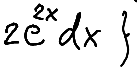 2e^{2x}dx }